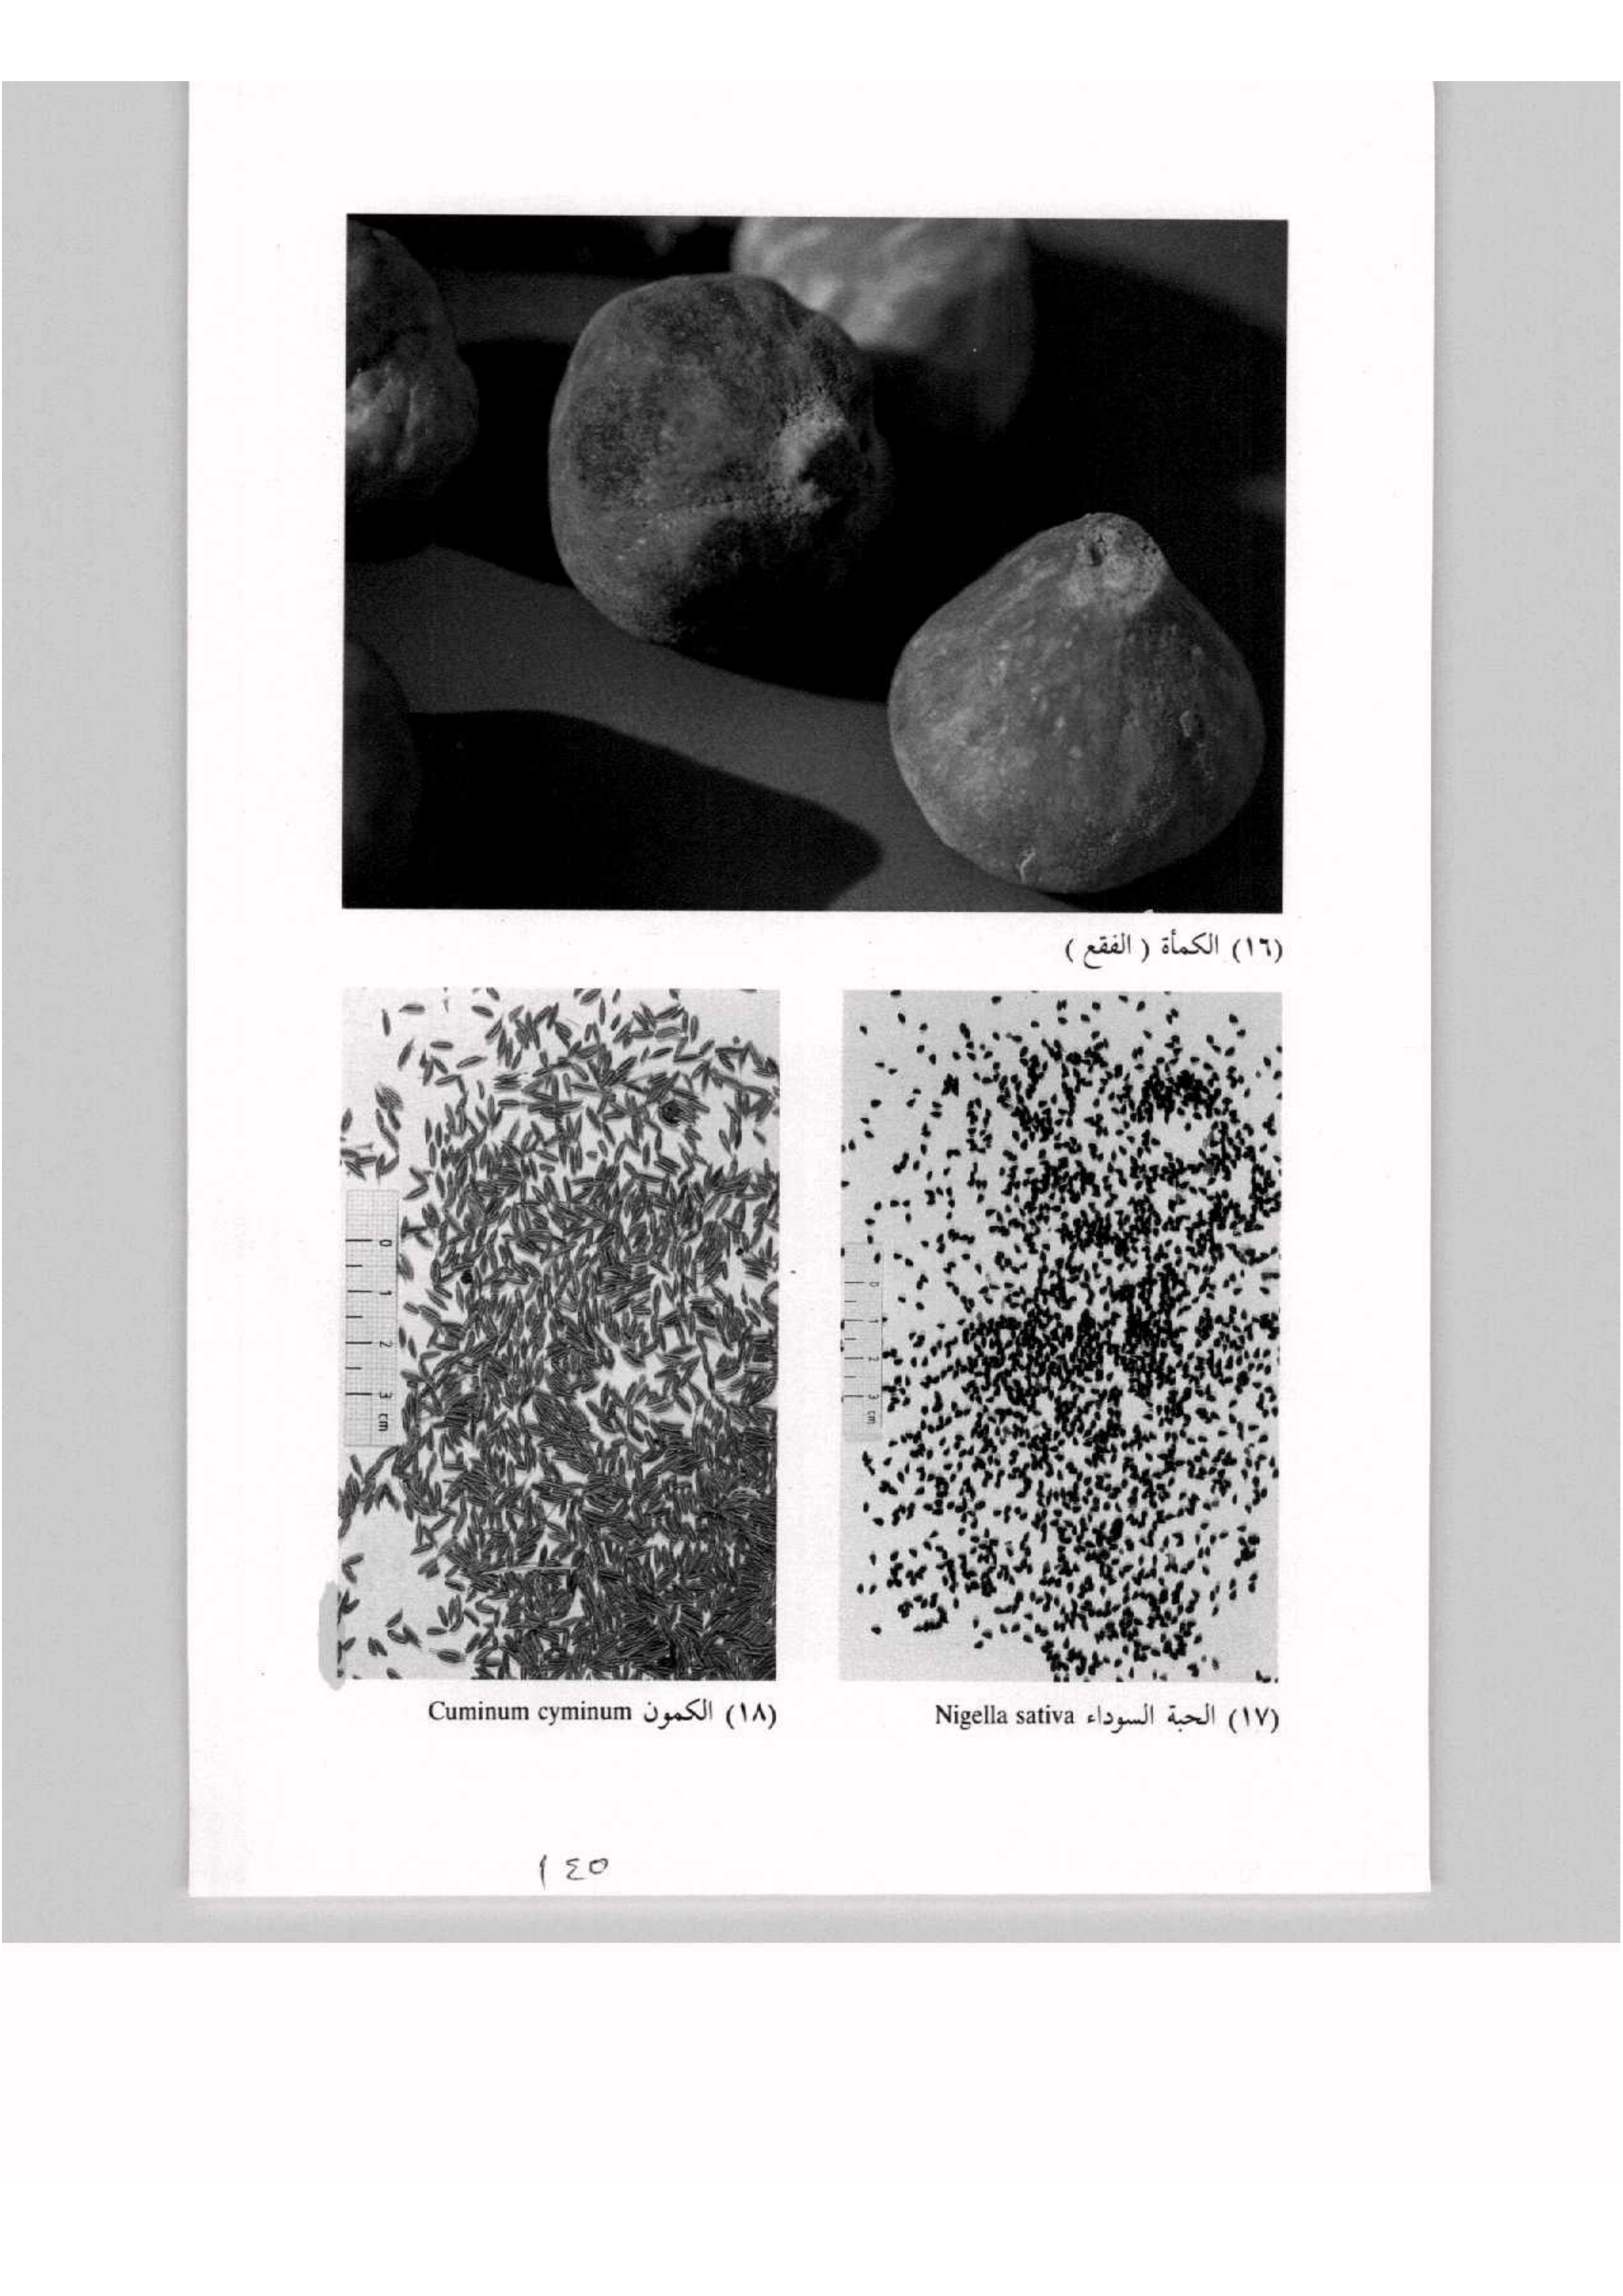 (١٦) الكمأة ( الفقع )
0
1
2
3 cm
0
1
2
3 cm
(١٧) الحبة السوداء Nigella sativa
(١٨) الكمون Cuminum cyminum
١٤٥